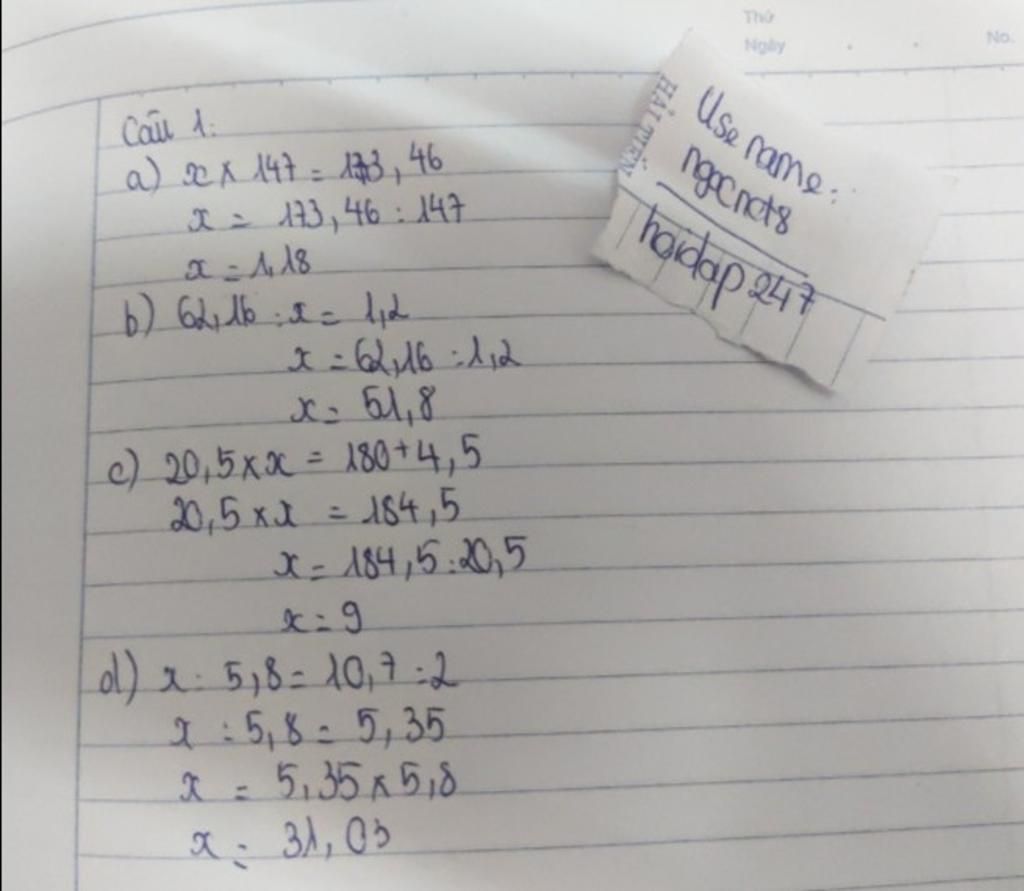 Thứ
Ngày
No.
Câu 1:
a) x × 147 = 173,46
x = 173,46 : 147
x = 1,18
b) 62,16 : x = 1,2
x = 62,16 : 1,2
x = 51,8
c) 20,5 × x = 180 + 4,5
20,5 × x = 184,5
x = 184,5 : 20,5
x = 9
d) x : 5,8 = 10,7 : 2
x : 5,8 = 5,35
x = 5,35 × 5,8
x = 31,03
HẢI TIẾN
Use name:
ngocnct8
hoidap 247